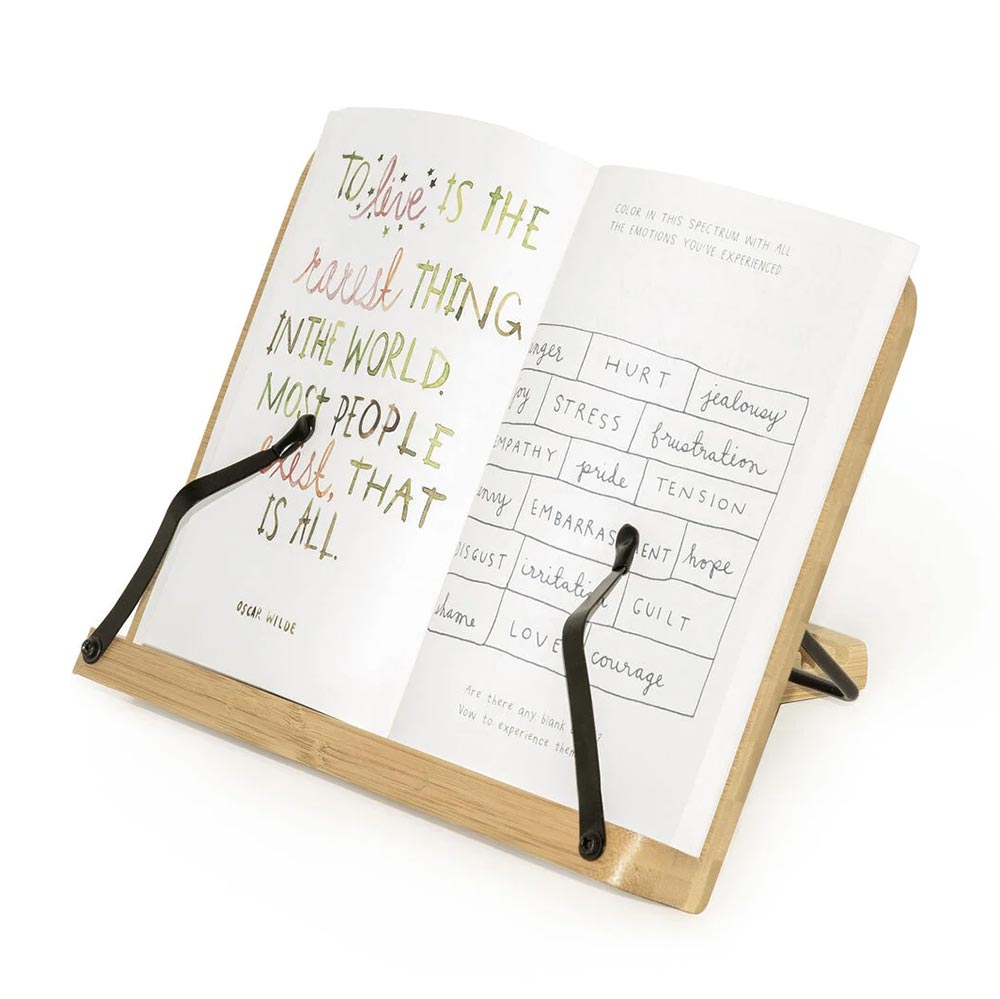 TO live IS THE
rarest THING
IN THE WORLD.
MOST PEOPLE
exist, THAT
IS ALL.
OSCAR WILDE
COLOR IN THIS SPECTRUM WITH ALL
THE EMOTIONS YOU'VE EXPERIENCED
HURT jealousy
STRESS frustration
pride TENSION
hope
DISGUST GUILT
LOVE courage
Are there any blank
Vow to experience